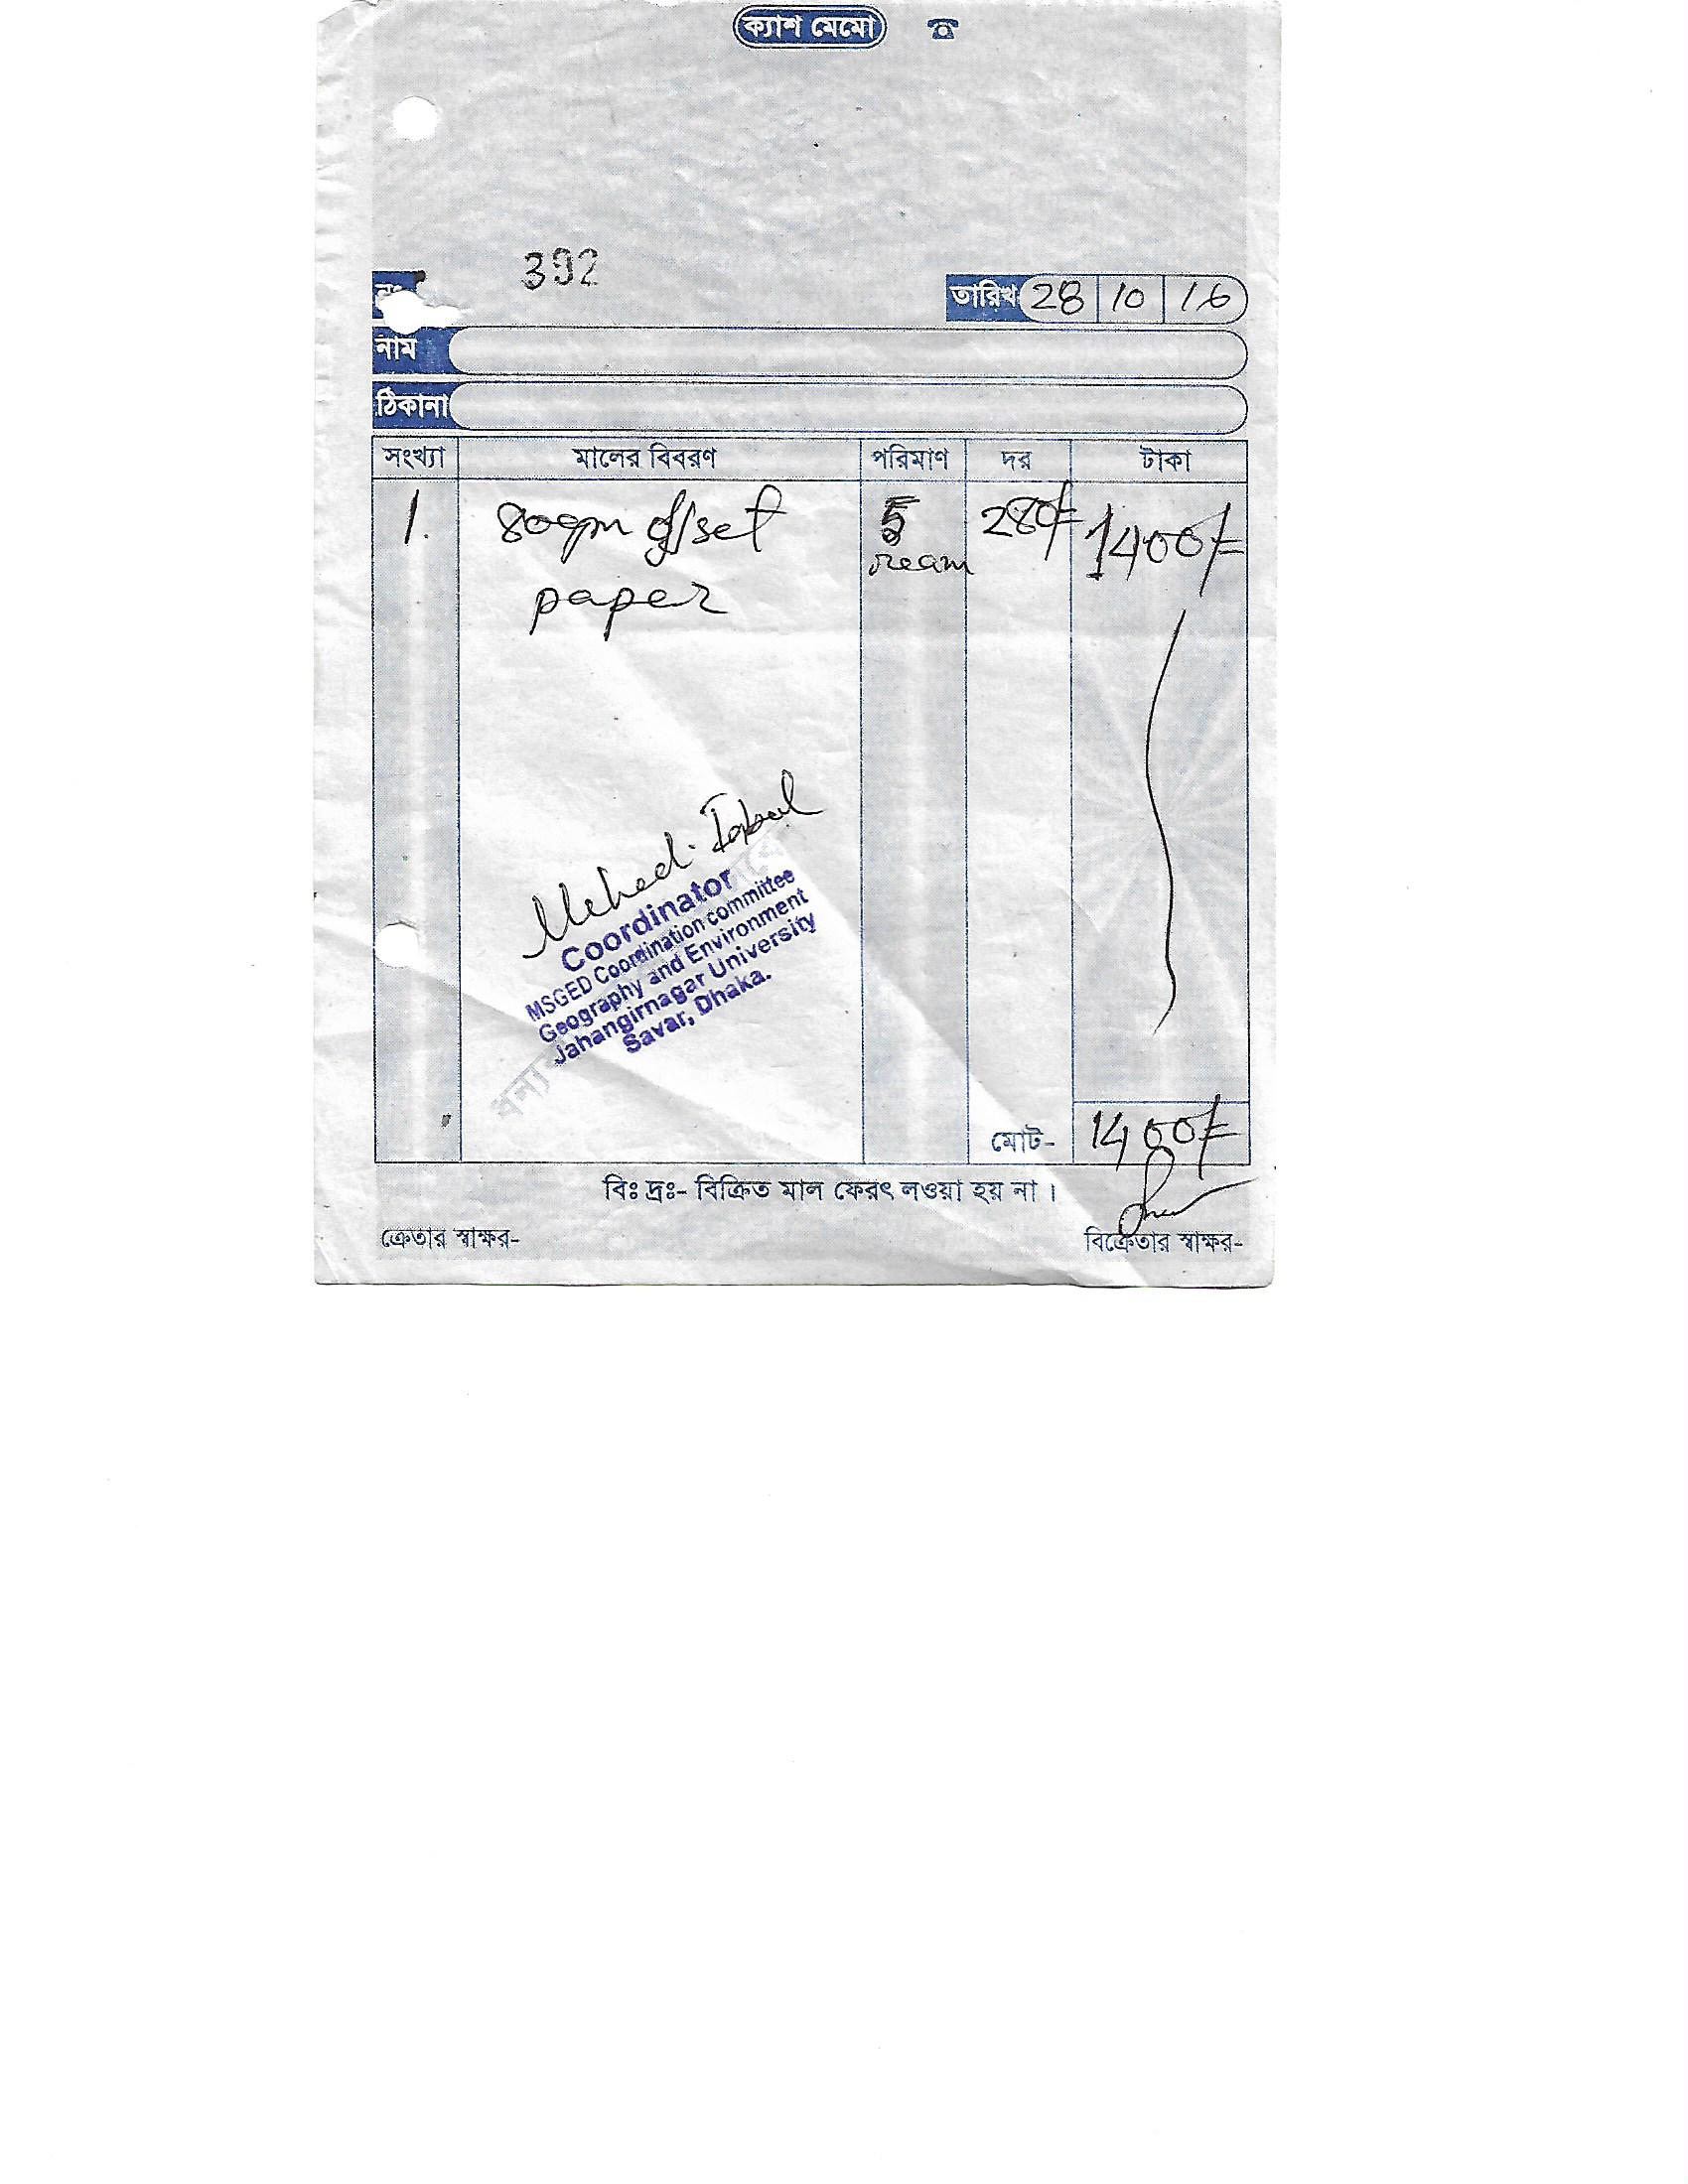 ক্যাশ মেমো
নং 392
তারিখ 28 10 16
নাম
ঠিকানা
সংখ্যা মালের বিবরণ পরিমাণ দর টাকা
1. 80gm offset paper 5 ream 280/= 1400/=
Mehedi Iqbal
Coordinator
MSGED Coordination committee
Geography and Environment
Jahangirnagar University
Savar, Dhaka.
মোট- 1400/=
বিঃ দ্রঃ- বিক্রিত মাল ফেরৎ লওয়া হয় না।
ক্রেতার স্বাক্ষর- বিক্রেতার স্বাক্ষর-